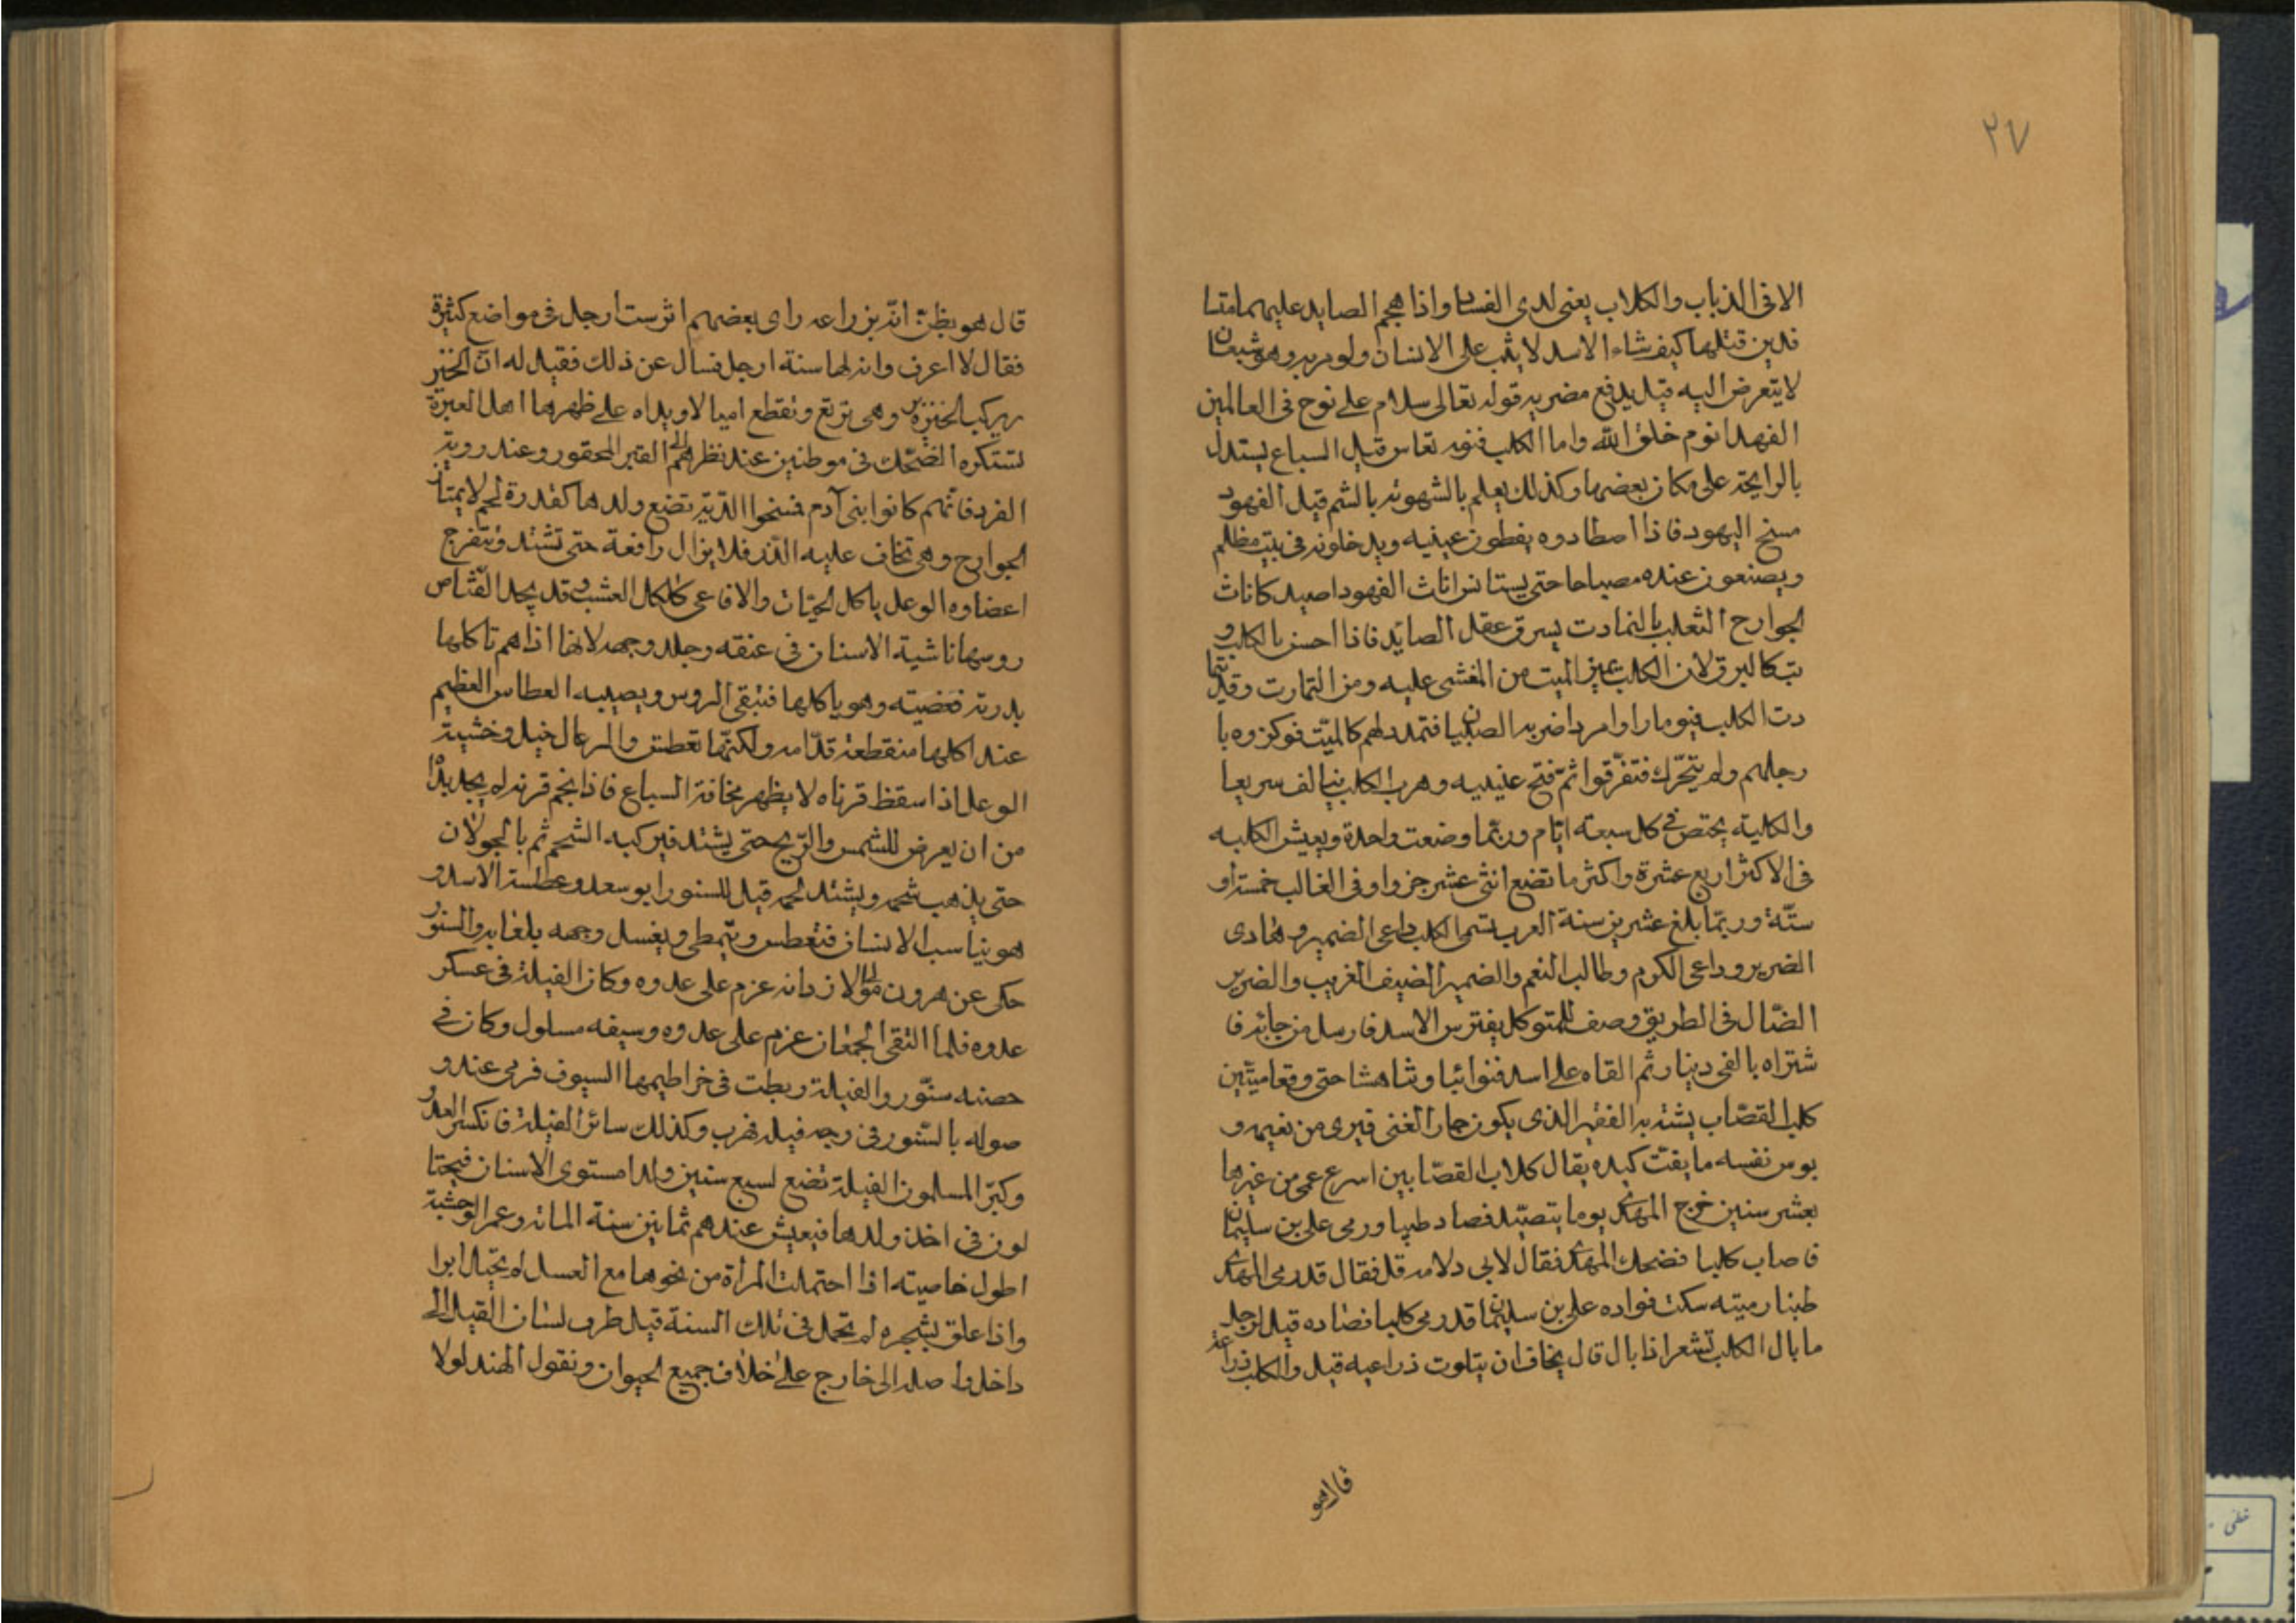 ٢٧
الا فى الذباب والكلاب يعنى لدى الفساد واذا هجم الصايد عليهما متسا
فدين قتلها كيف شاء الاسد لا يثب على الانسان ولو مر به وهو شبعان
لا يتعرض اليه قيل يدفع مضر به قوله تعالى سلام على نوح فى العالمين
الفهد انوم خلق الله واما الكلب فنومه نعاس قيل السباع يستدل
بالرايحة على مكان بعضها وكذلك يعلم بالشهوة بالشم قيل الفهود
مسخ اليهود فاذا اصطادوه يغطون عينيه ويدخلونه فى بيت مظلم
ويصنعون عنده مصباحا حتى يستانس اناث الفهود اصيد كاناث
الجوارح الثعلب بالتمادت يسرق عقل الصائد فاذا احسن بالكلب و
ثب كالبرق لان الكلب يميز الميت من المغشى عليه ومن التمارت وقد يتما
دت الكلب فيوما راوا مرد اضر به الصبيان فتمدد لهم كالميت فوكزوه با
رجلهم ولم يتحرك فتفرقوا ثم فتح عينيه وهرب الكلب يالف سريعا
والكلبة يختص فى كل سبعة ايام وربما وضعت واحدة ويعيش الكلبه
فى الاكثر اربع عشرة واكثر ما تضع اثنى عشر جروا وفى الغالب خمسة او
ستة وربما بلغ عشرين سنة العرب تسمى الكلب داعى الضمير وهادى
الضرير وداعى الكرم وطالب النعم والضمير الضيف الغريب والضرير
الضال فى الطريق وصف للمتوكل يفترس الاسد فارسل من جائه فا
شتراه بالفى دينار ثم القاه على اسد فتواثبا وتناهشا حتى وقعا ميتين
كلب القصاب يشتد به الفقير الذى يكون جار الغنى فيرى من نعيمه و
بوس نفسه ما يفت كبده يقال كلاب القصابين اسرع عمى من غيرها
بعشر سنين خرج المهدى يوما يتصيد فصاد ظبيا ورمى على بن سليمان
فاصاب كلبا فضحك المهدى فقال لابى دلامه قل فقال قد رمى المهدى
ظبيا رميته سكت فواده على بن سليمان قد رمى كلبا فصاده قيل لرجل
ما بال الكلب تشعر اذا بال قال يخاف ان يتلوث ذراعيه قيل والكلب ذراعه
قال هو
قال هو يظن انه بذراعه راى بعضهم اثر ست ارجل فى مواضع كثيرة
فقال لا اعرف دابة لها ستة ارجل فسال عن ذلك فقيل له ان الخنز
ير يركب الخنزيره وهى ترتع وتقطع اميالا ويداه على ظهرها اهل العبرة
تستكره الضحك فى موطنين عند نظرهم الى القبر المحفور وعند روية
القرد فانهم كانوا بنى آدم فمسخوا الدبة تضع ولدها كقدرة لحم لا يمتاز
الجوارح وهى تخاف عليه الذر فلا يزال رافعة حتى تشتد وتنفرج
اعضاوه الوعل ياكل الحيات والافاعى كاكل العشب وقد يجد القناص
روسها ناشبة الاسنان فى عنقه وجلد وجهه لانها اذا هم تاكلها
بدرته فعضيته وهو ياكلها فتبقى الروس ويصيبه العطاس العظيم
عند اكلها منقطعة قدامه ولكنها تعطش والمرعال خيل وخشية
الوعل اذا سقط قرناه لا يظهر مخافة السباع فاذا نجم قرنه لم يجد بدا
من ان يعرض للشمس والريح حتى يشتد فيركبه الشحم ثم بالجولان
حتى يذهب شحمه ويشتد لحمه قيل للسنور ابو سعد وعطسة الاسد و
هو يناسب الانسان فتعطس ويتمطى ويغسل وجهه بلعابه والسنور
حكى عن هرون مولى الازد انه عزم على عدوه وكان الفيلة فى عسكر
عدوه فلما التقى الجمعان عزم على عدوه وسيفه مسلول وكان فى
حضنه سنور والفيلة ربطت فى خراطيمها السيوف فرمى عنده و
صوله بالسنور فى وجه فيله فهرب وكذلك سائر الفيلة فانكسر العدو
وكبر المسلمون الفيلة تضع لسبع سنين ولدا مستوى الاسنان فيحتا
لون فى اخذ ولدها فيعيش عندهم ثمانين سنة المائة وعمر الوحشية
اطول خاصيته اذا احتملت المرأة من نحوها مع العسل لم تحبل ابرا
واذا علق بشجره لم تحمل فى تلك السنة قيل طرف لسان الفيل الى
داخل واصله الى خارج على خلاف جميع الحيوان ونقول الهند لولا